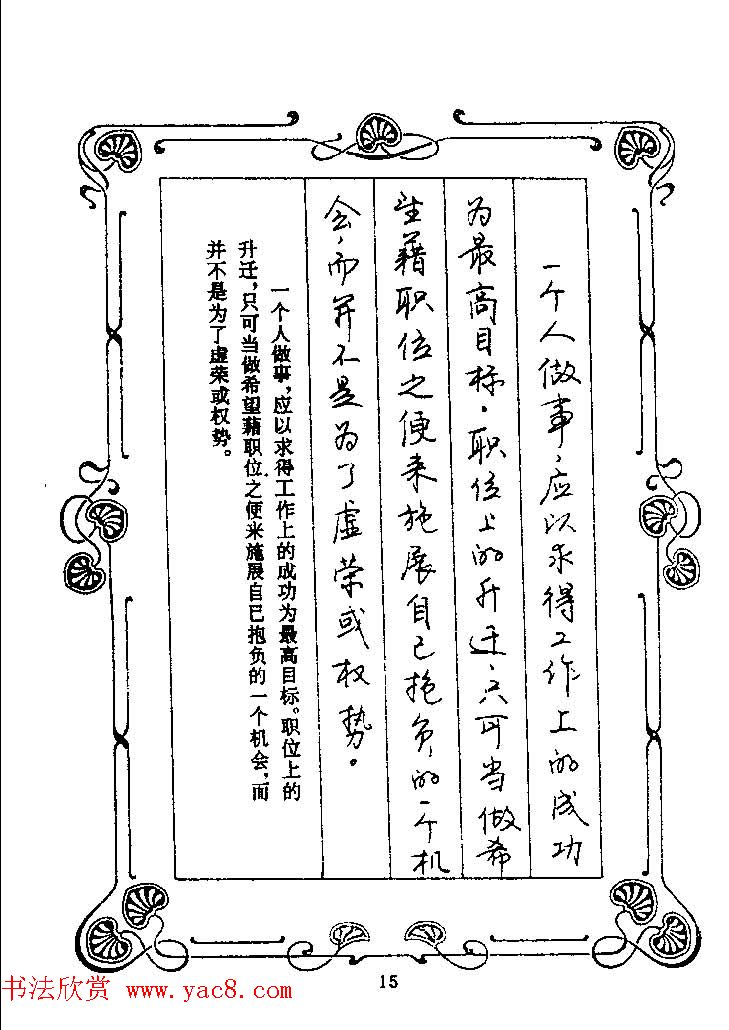 一个人做事，应以求得工作上的成功
为最高目标。职位上的升迁，只可当做希
望藉职位之便来施展自己抱负的一个机
会，而并不是为了虚荣或权势。
一个人做事，应以求得工作上的成功为最高目标。职位上的
升迁，只可当做希望藉职位之便来施展自己抱负的一个机会，而
并不是为了虚荣或权势。
15
书法欣赏 www.yac8.com